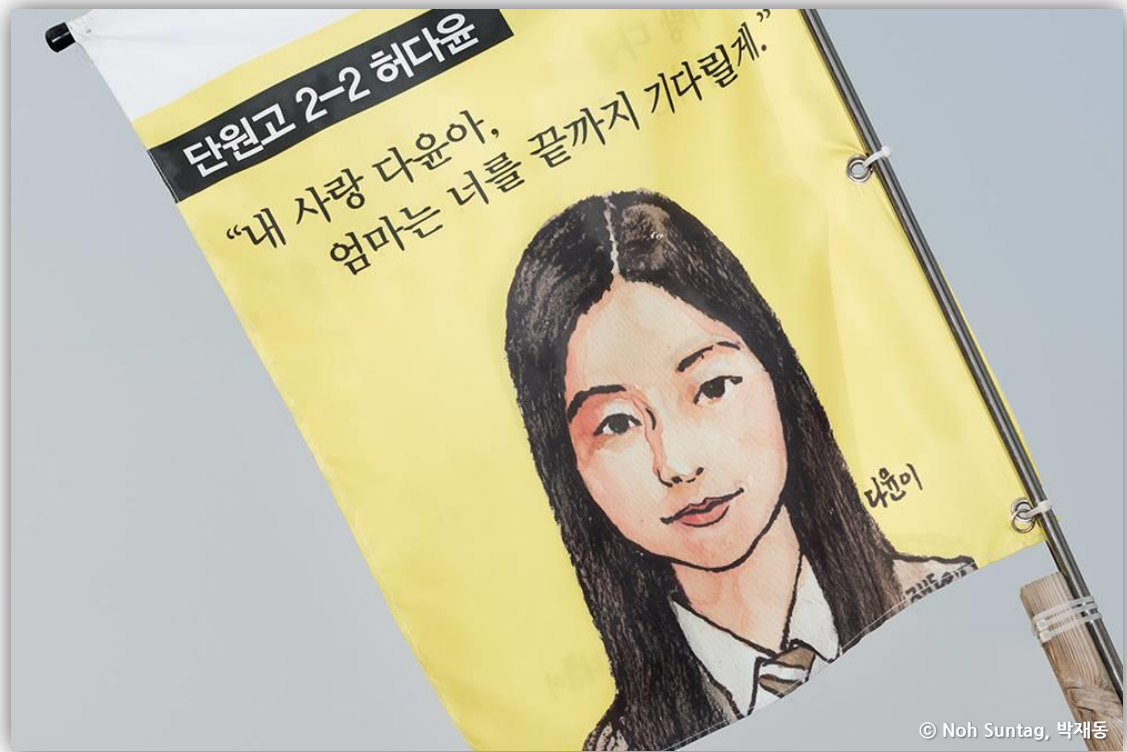 단원고 2-2 허다윤
“내 사랑 다윤아,
엄마는 너를 끝까지 기다릴게.”
다윤이
© Noh Suntag, 박재동